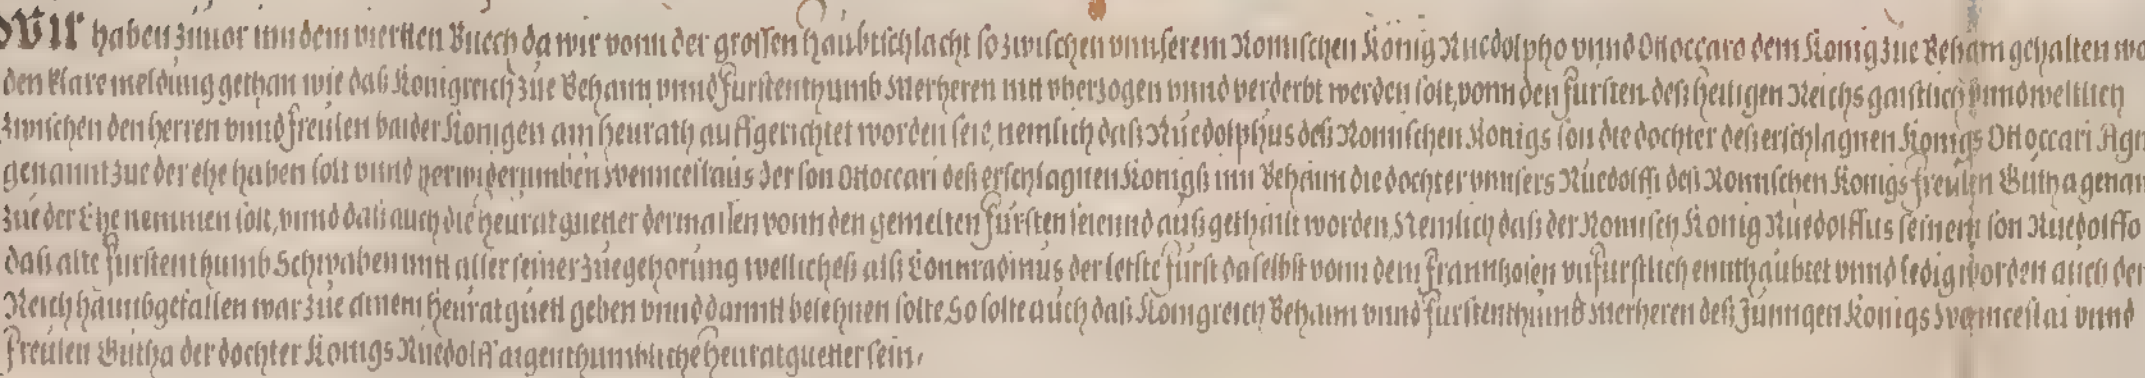 Wir haben zuuor inn dem vierten Buech da wir vonn der grossen Haubtschlacht so zwischen vnnserem Romischen König Ruedolpho vnnd Ottoccaro dem König zue Beham gehalten wo
den klare meldung gethan wie daß Konigreich zue Behaim vnnd Furstenthumb Merheren nitt vberzogen vnnd verderbt werden solt, vonn den Fursten deß heiligen Reichs gaistlich vnnd weltlich
zwischen den herren vnnd freulen baider Konigen ain heurath auffgerichtet worden seie, nemlich daß Ruedolphus deß Romischen Konigs son die dochter deß erschlagnen Konigs Ottoccari Agn
genannt zue der ehe haben solt vnnd herwiderumben Wenncesslaus der son Ottoccari deß erschlagnen Königß inn Behaim die dochter vnnsers Ruedolffi deß Romischen Konigs freulen Gutha genan
zue der Ehe nemmen solt, vnnd daß auch die heuratguetter dermassen vonn den gemelten Fürsten seiennd außgethailt worden, Nemlich daß der Romisch Konig Ruedolffus seinem son Ruedolffo
daß alte Furstenthumb Schwaben mitt aller seiner zuegehorung wellicheß alß Connradinus der letste Fürst daselbst vonn dem Frannhosen vnfurstlich ennthaubtet vnnd ledig worden auch dem
Reich haimbgefallen war zue ainem heuratguett geben vnnd damitt belehnen solte. So solte auch daß Konigreich Behaim vnnd Furstenthumb Merheren deß Jünngen Konigs Wenncesslai vnnd
Freulen Gutha der dochter Konigs Ruedolff aigenthumbliche heuratguetter sein,